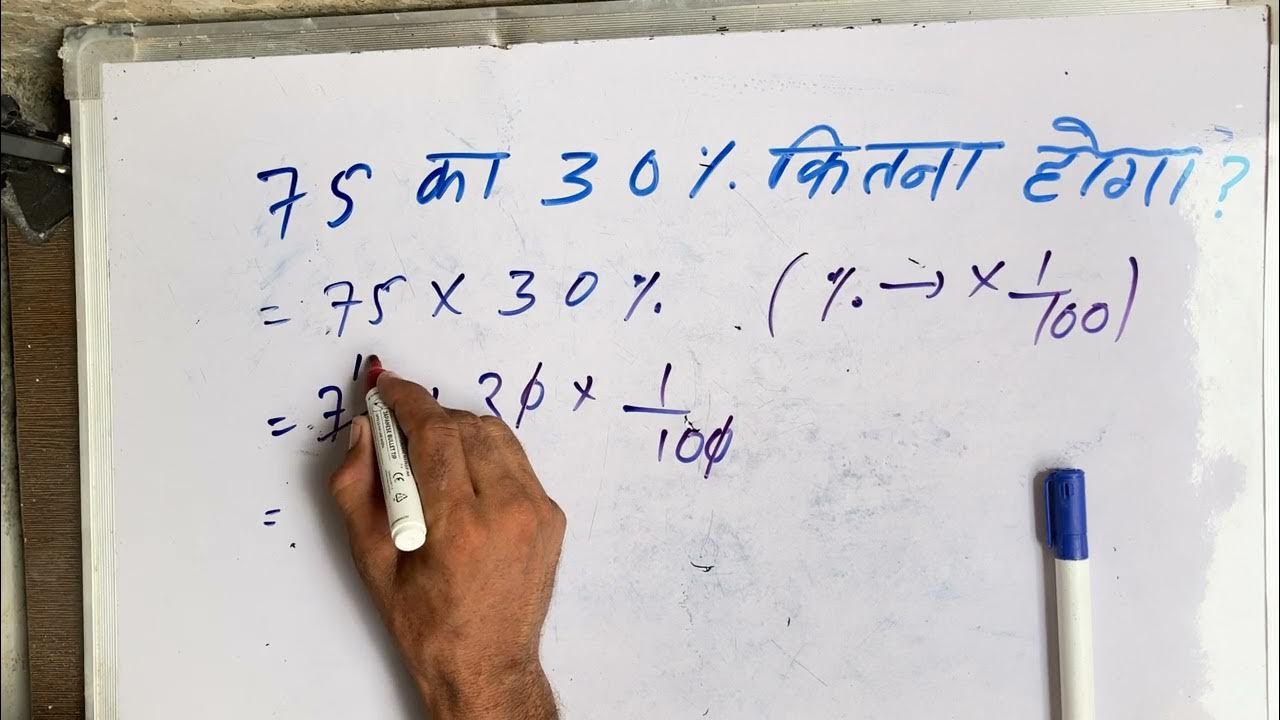 75 का 30% कितना होगा?
= 75 × 30% (% → × 1/100)
= 7 30 × 1/100
=